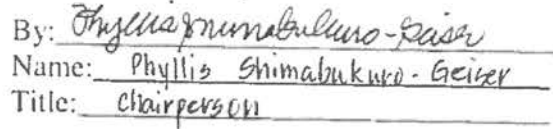 By: Phyllis Shimabukuro-Geiser
Name: Phyllis Shimabukuro-Geiser
Title: Chairperson